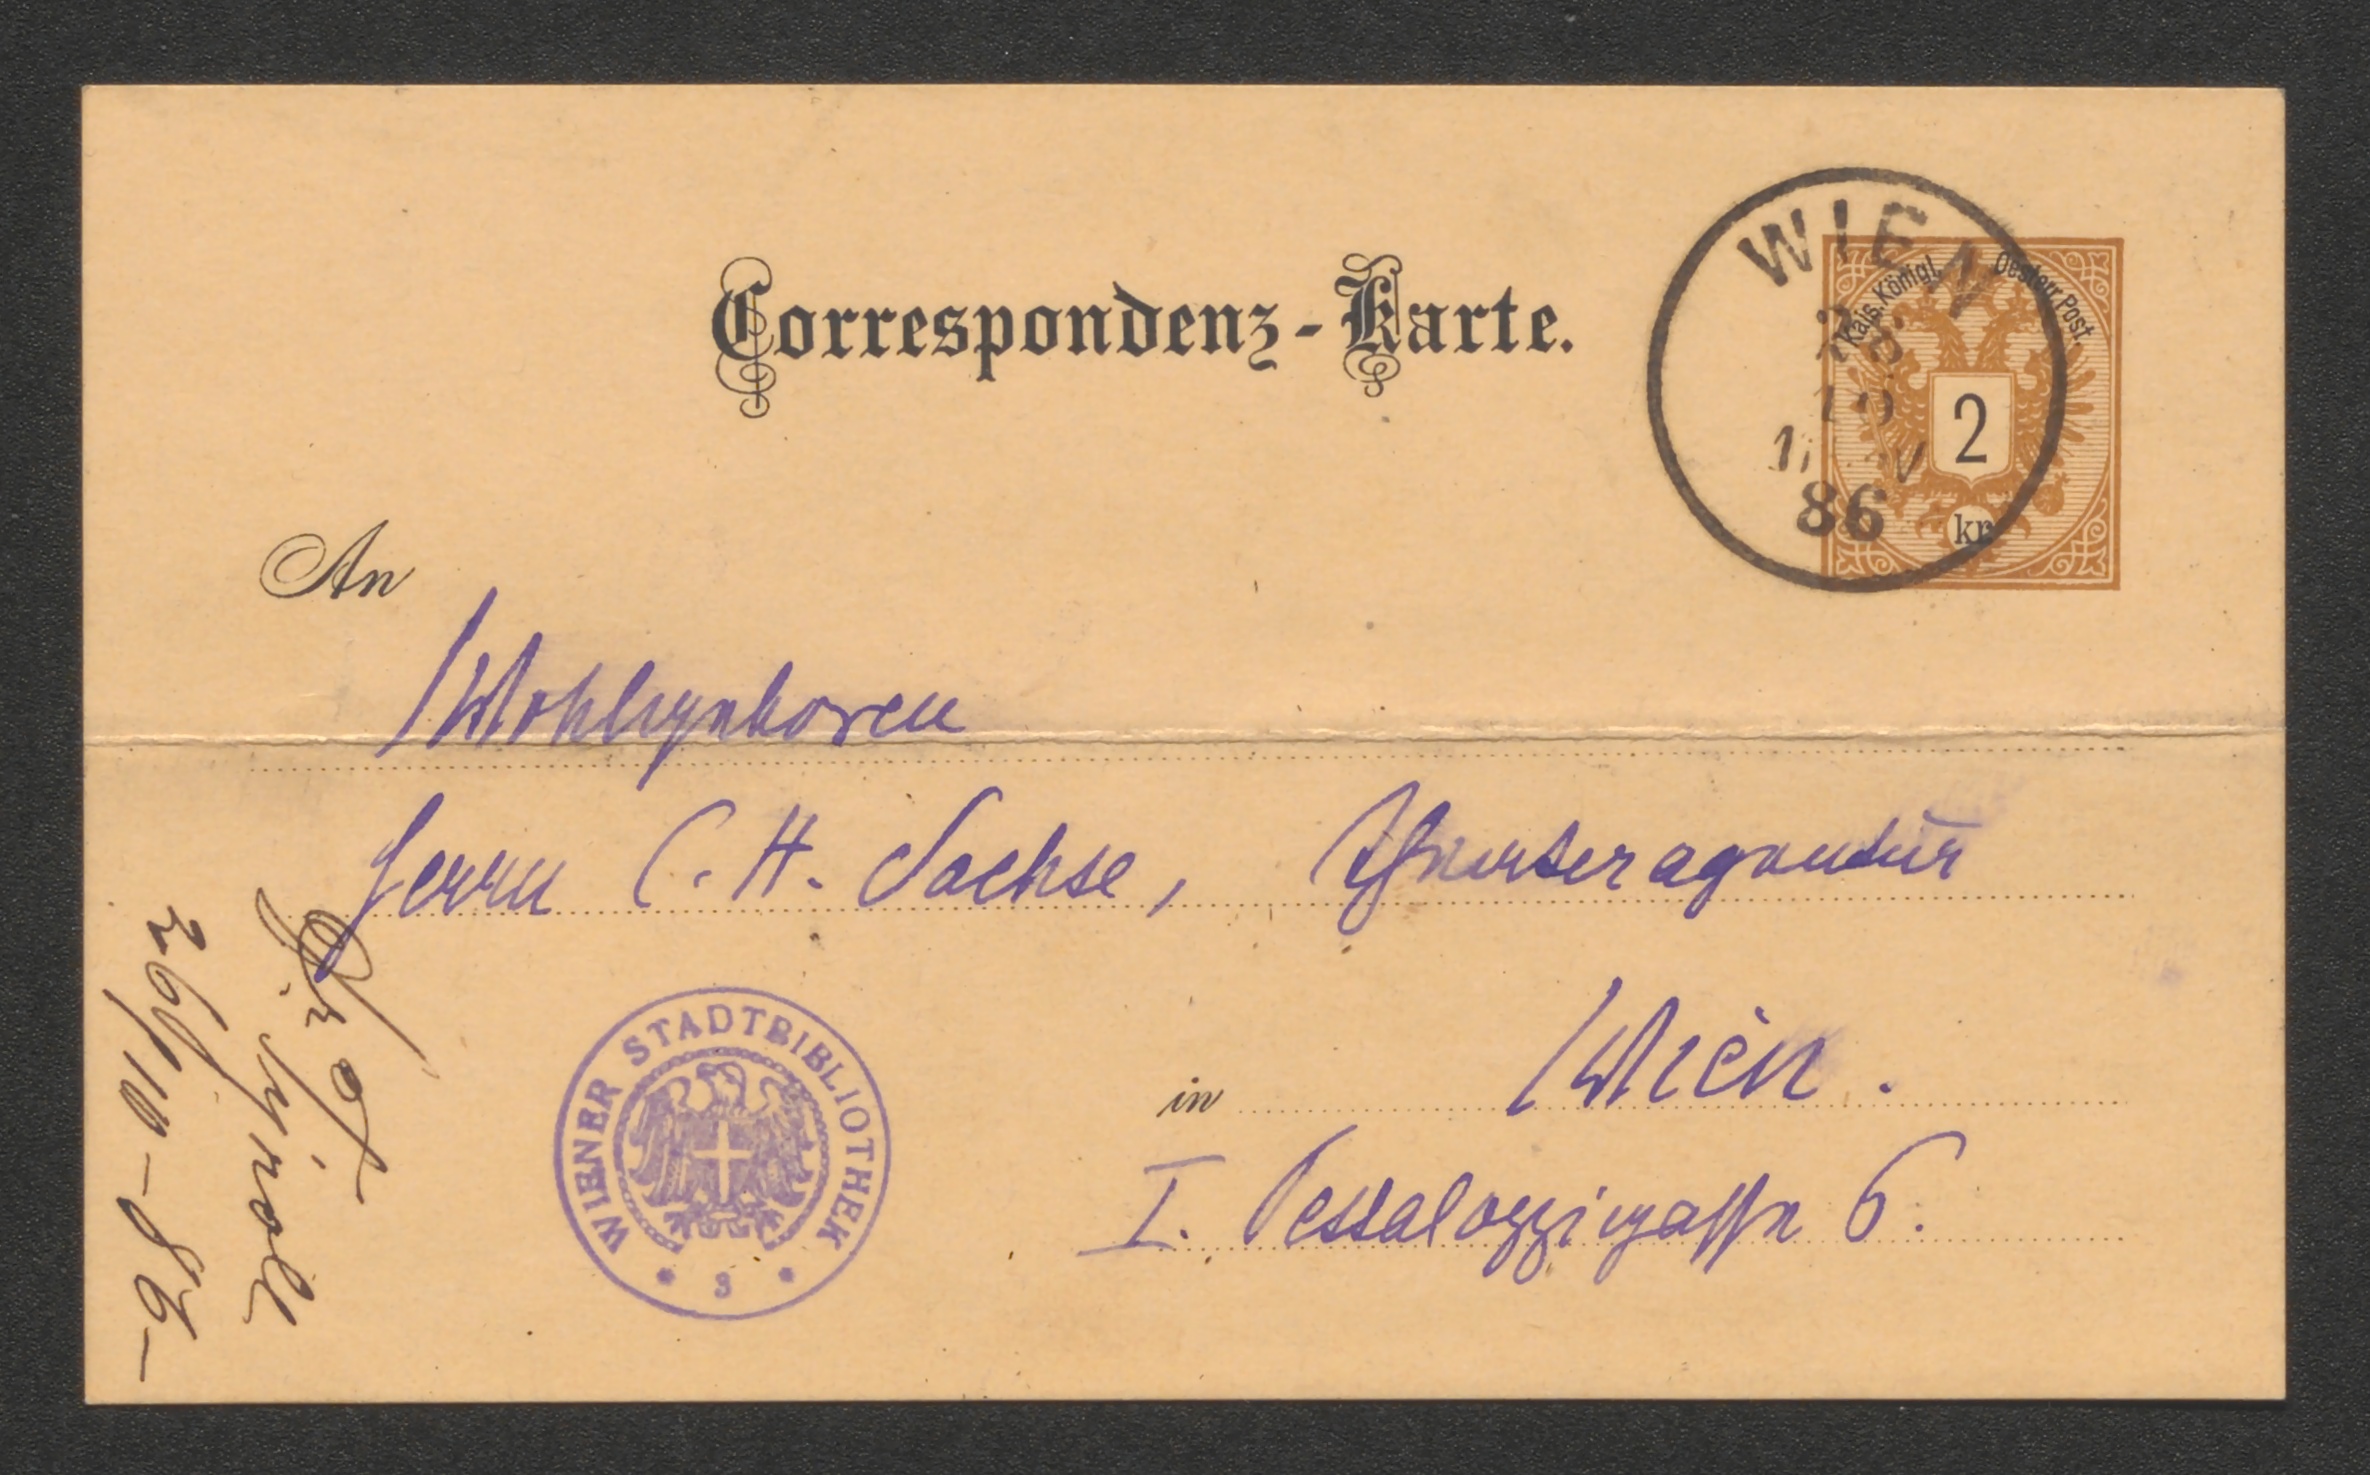 Correspondenz-Karte.
WIEN
86
Kais. Königl. Oesterr. Post.
2
kr.
An
Wohlgeboren
Herrn C. H. Sachse, Theateragentur
in Wien.
I. Pestalozzigasse 6.
WIENER STADTBIBLIOTHEK
Dr
Tyrolt
26/10-86-